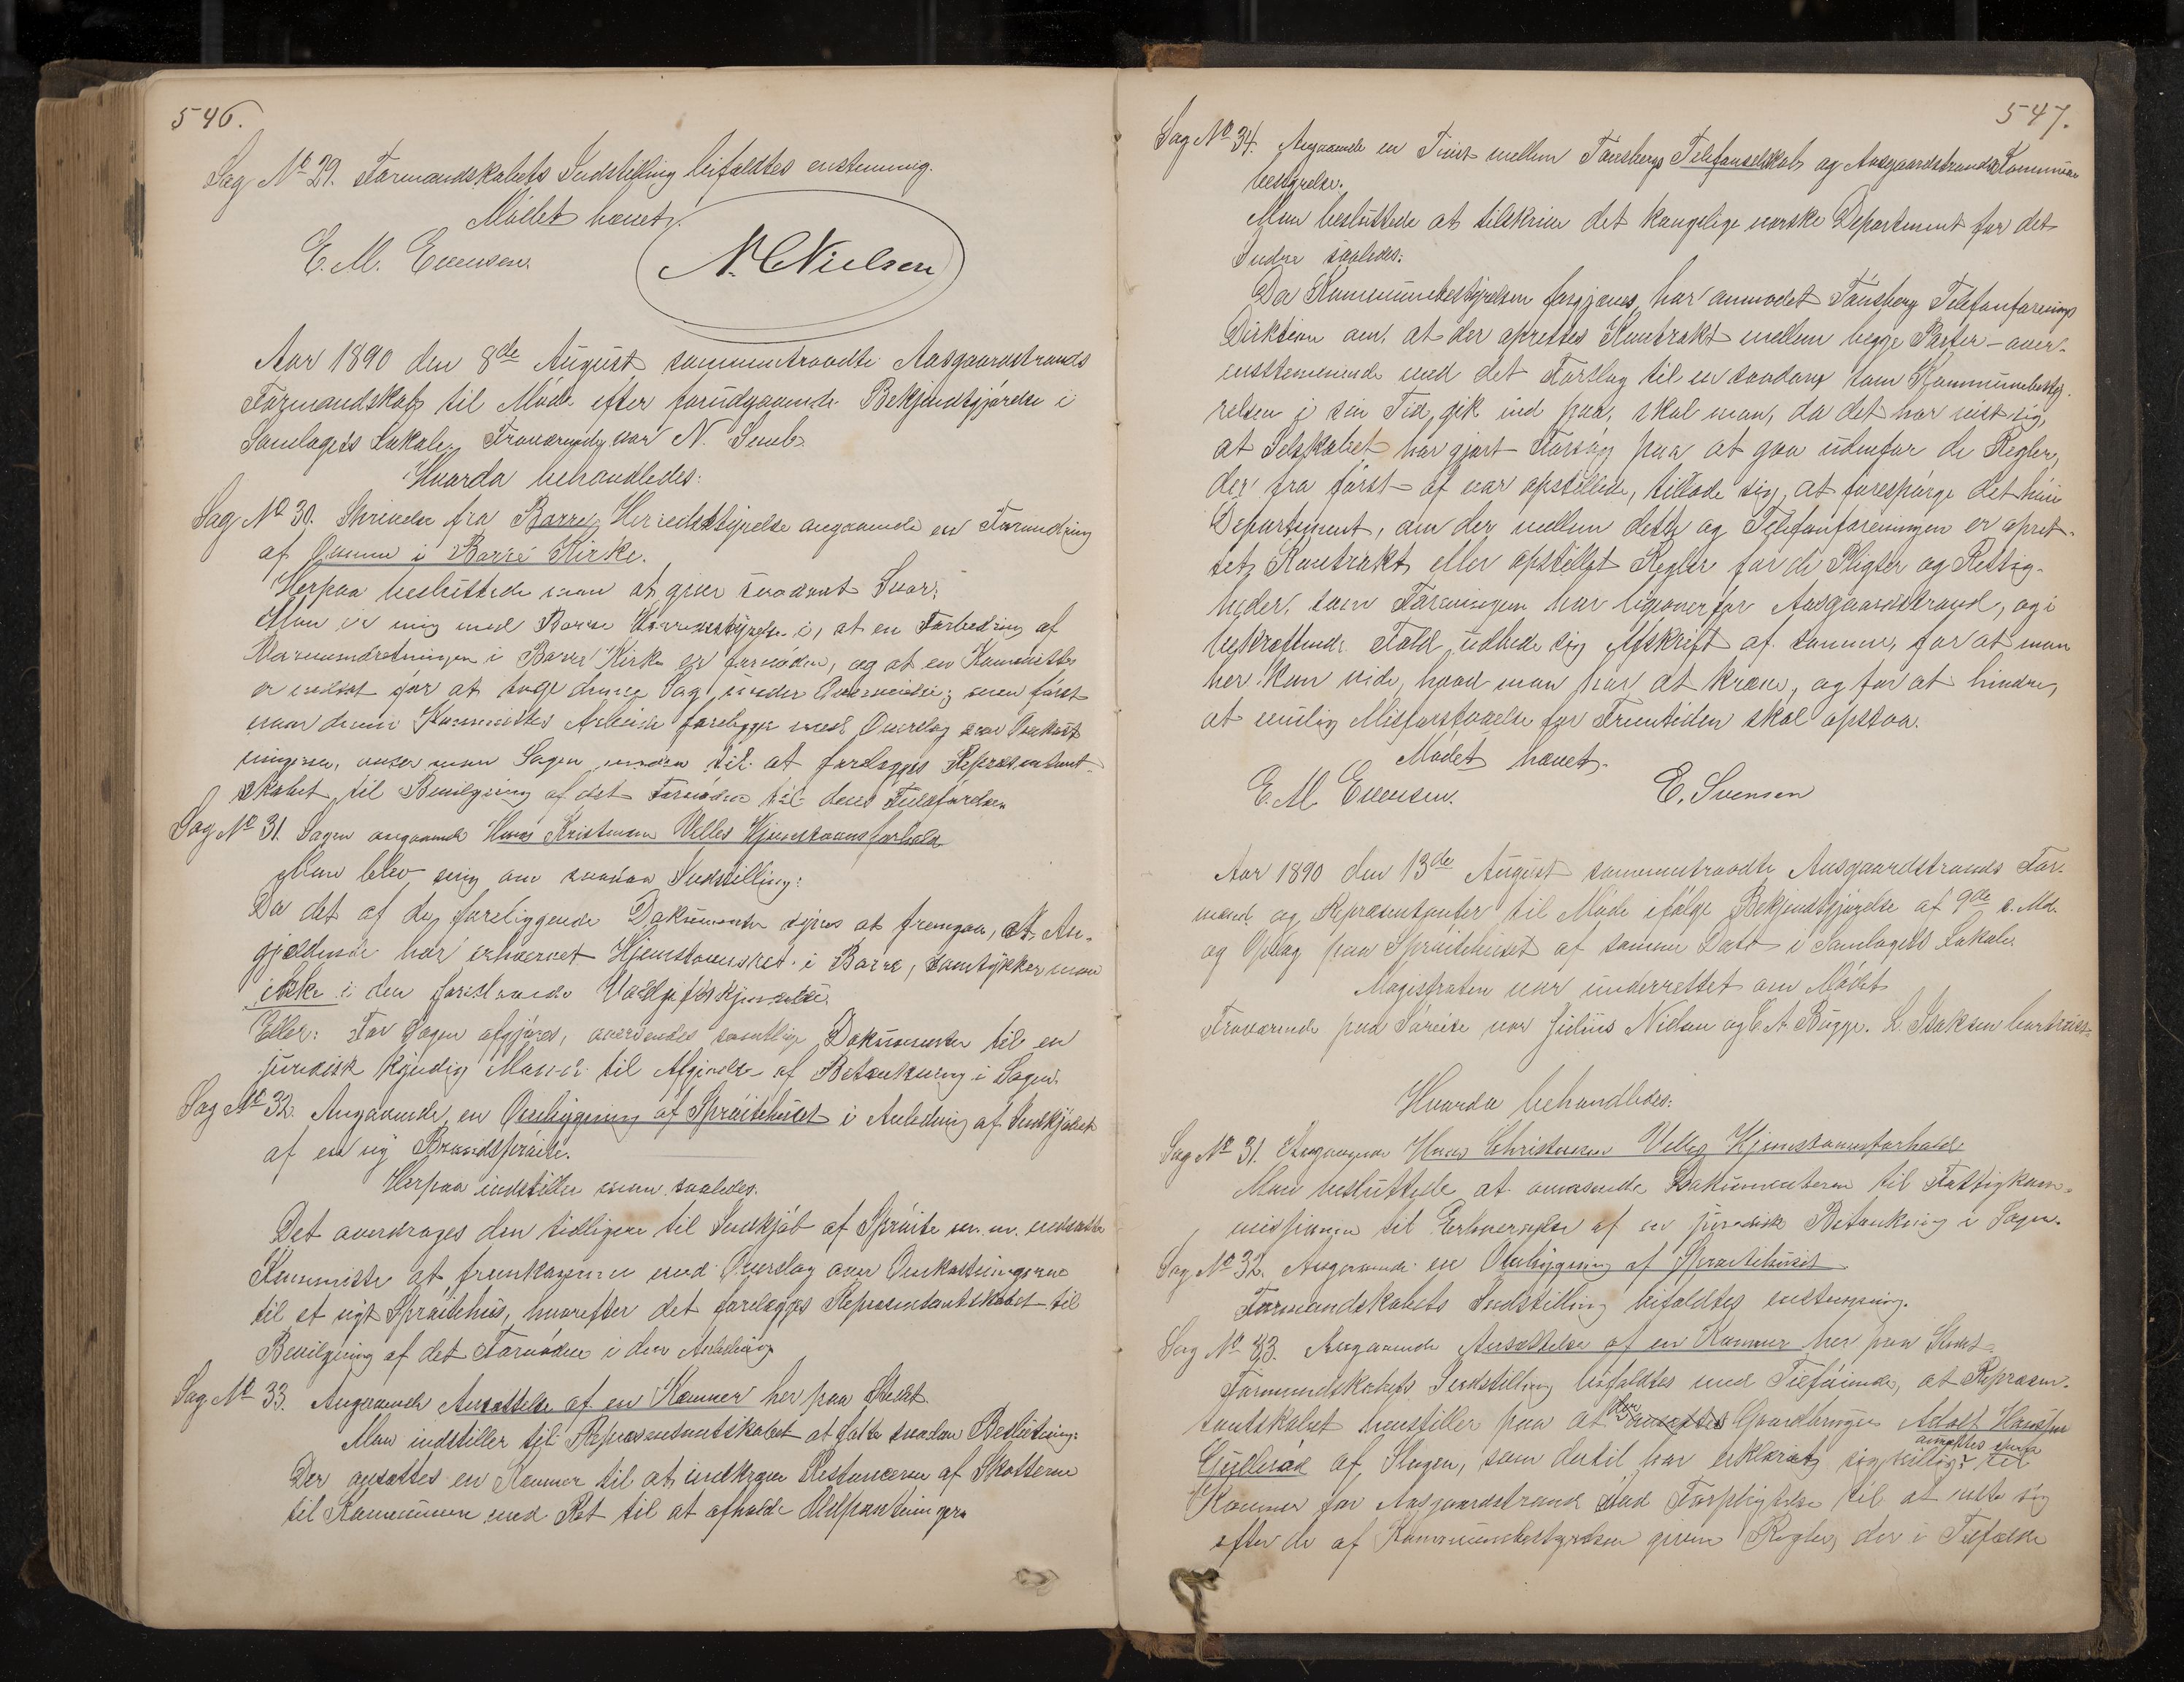 546.
Sag No 29. Formandskabets Indstilling bifaldtes enstemmig.
Mödet hævet.
E. M. Evensen. N. Nielsen
Aar 1890 den 8de August sammentraadte Aasgaardstrands
Formandskab til Möde efter forudgaaende Bekjendtgjörelse i
Samlagets Lokale. Fraværende var N. Semb.
Hvorda behandledes:
Sag No 30. Skrivelse fra Borre Herredsstyrelse angaaende en Forandring
af Ovnene i Borre Kirke.
Herpaa besluttede man at give saadant Svar:
Man er enig med Borre Herredsstyrelse i, at en Forbedring af
Varmeindretningen i Borre Kirke er fornöden, og at en Kommitte
er valgt for at tage denne Sag under Overveielse; men först
naar denne Kommittes Arbeide foreligger med Overslag over Omkost
ningerne, anser man Sagen moden til at forelægges Repræsentant-
skabet til Bevilgning af det Fornödne til dens Fuldförelse
Sag No 31. Sagen angaaende Hans Kristensen Velles Hjemstavnsforhold
Man blev enig om saadan Indstilling:
Da det af de foreliggende Dokumenter synes at fremgaa, at An-
gjældende har erhvervet Hjemstavnsret i Borre, samtykker man
ikke i den foreslaaede Voldgiftskjendelse.
Eller: Før Sagen afgjöres, oversendes samtlige Dokumenter til en
juridisk kyndig Mand til Afgivelse af Betænkning i Sagen.
Sag No 32. Angaaende en Ombygning af Spröitehuset i Anledning af Indkjöbet
af en ny Brandspröite.
Herpaa indstiller man saaledes.
Det overdrages den tidligere til Indkjöb af Spröite m. m. nedsatte
Kommitte at fremkomme med Overslag over Omkostningerne
til et nyt Spröitehus, hvorefter det forelægges Repræsentantskabet til
Bevilgning af det Fornödne i den Anledning
Sag No 33. Angaaende Ansættelse af en Kæmner her paa Stedet.
Man indstiller til Repræsentantskabet at fatte saadan Beslutning:
Der ansættes en Kæmner til at indkræve Restancerne af Skatterne
til Kommunen med Ret til at afholde Udpantninger.
547.
Sag No 34. Angaaende en Tvist mellem Tönsbergs Telefonselskab og Aasgaardstrands Kommune
bestyrelse.
Man besluttede at tilskrive det kongelige norske Departement for det
Indre saaledes:
Da Kommunebestyrelsen forgjæves har anmodet Tönsberg Telefonforenings
Direktion om, at der oprettes Kontrakt mellem begge Parter – over-
ensstemmende med det Forslag til en saadan som Kommunebesty-
relsen i sin Tid gik ind paa, skal man, da det har vist sig,
at Selskabet har gjort Forsög paa at gaa udenfor de Regler,
der fra först af var opstillede, tillade sig at forespörge det höie
Departement, om der mellem dette og Telefonforeningen er opret-
tet Kontrakt eller opstillet Regler for de Pligter og Rettig-
heder, som Foreningen har ligeoverfor Aasgaardstrand, og i
bekræftende Fald udbede sig Afskrift af samme, for at man
her kan vide, hvad man har at kræve, og for at hindre,
at mulig Misforstaaelse for Fremtiden skal opstaa.
Mödet hævet.
E. M. Evensen. E. Svensen
Aar 1890 den 13de August sammentraadte Aasgaardstrands For-
mænd og Repræsentanter til Möde ifölge Bekjendtgjörelse af 9de d. Md.
og Opslag paa Spröitehuset af samme Dato i Samlagets Lokale
Magistraten var underrettet om Mödet
Fraværende paa Söreise var Julius Nielsen og C. A. Bugge. L. Isaksen bortreist.
Hvorda behandledes:
Sag No 31. Angaaende Hans Christensen Velles Hjemstavnsforhold
Man besluttede at oversende Dokumenterne til Fattigkom-
missionen til Erhvervelse af en juridisk Betænkning i Sagen.
Sag No 32. Angaaende en Ombygning af Spröitehuset
Formandskabets Indstilling bifaldtes enstemmig.
Sag No 33. Angaaende Ansættelse af en Kæmner her paa Stedet
Formandskabets Indstilling bifaldtes med Tilföiende, at Repræsen-
tantskabet henstiller paa at der ansættes Gaardbruger Adolf Hansen
Gullerød af Slagen, som dertil har erklæret sig villig, til
ansættes som
Kæmner for Aasgaardstrand med Forpligtelse til at rette sig
efter de af Kommunebestyrelsen givne Regler, der i Tilfælde